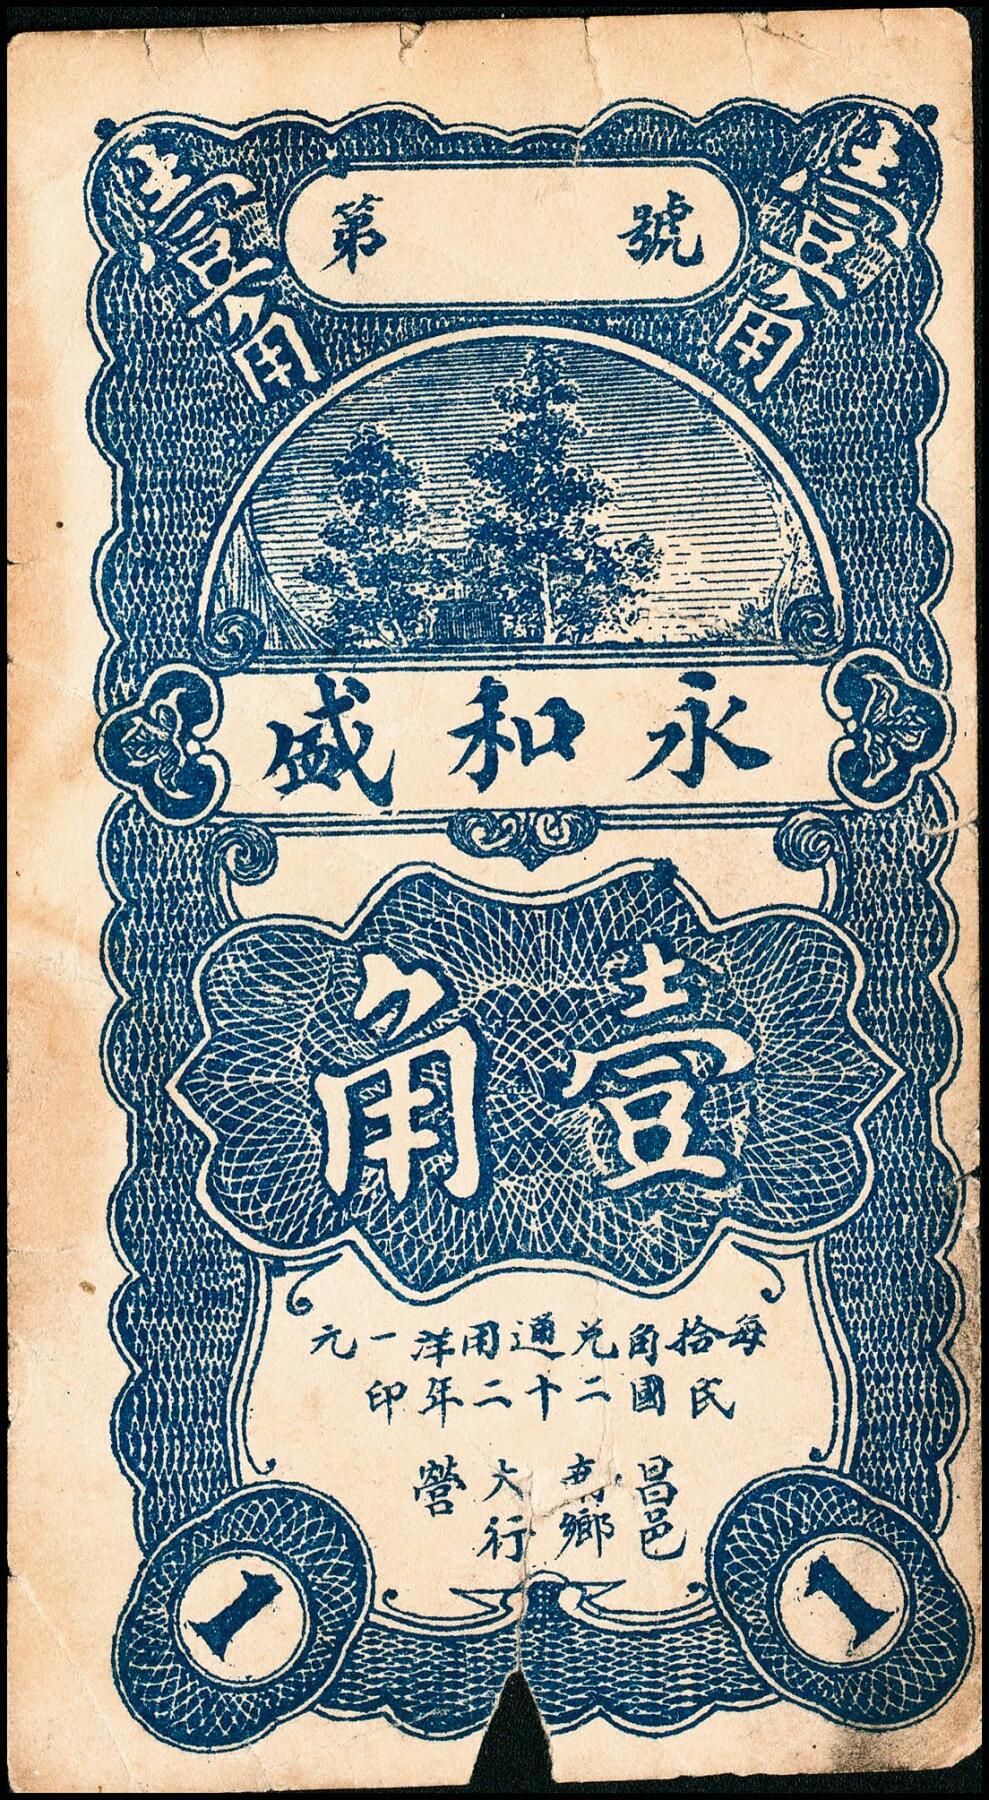 壹角
壹角
第 號
永和盛
壹角
每拾角兑通用洋一元
民國二十二年印
昌邑
南鄉
大行
營
1
1